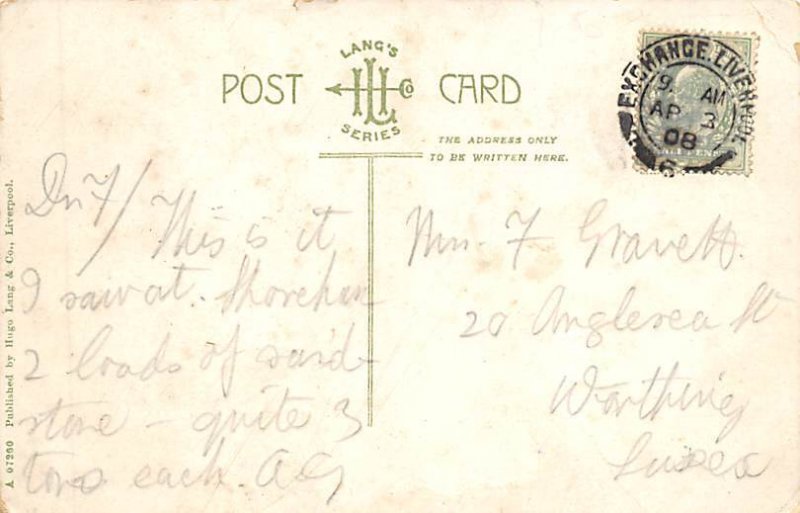 POST CARD
LANG'S
HL & Co
SERIES
THE ADDRESS ONLY
TO BE WRITTEN HERE.
EXCHANGE. LIVERPOOL
9. AM
AP 3
08
6
A 07260 Published by Hugo Lang & Co., Liverpool.
Dr F/
This is it
I saw at. Shoreham
2 loads of sand-
stone – quite 3
tons each. AG
F Gravett.
20 Anglesea St
Worthing
Sussex